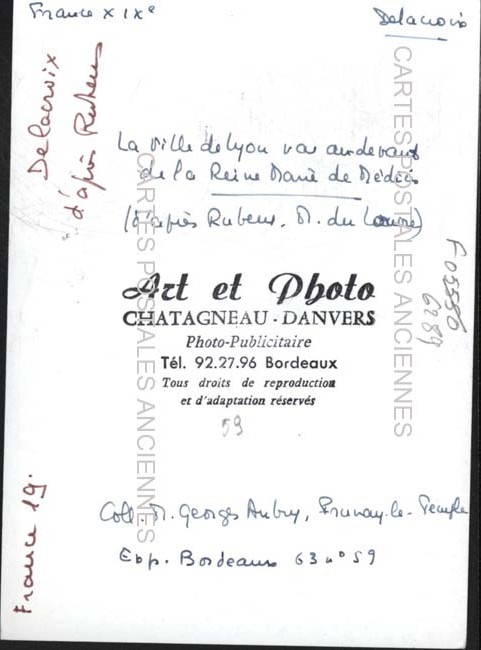 France XIXe
Delacroix
Delacroix
d'après Rubens
La Ville de Lyon va au devant
de la Reine Marie de Médicis
(d'après Rubens, M. du Louvre)
Art et Photo
CHATAGNEAU - DANVERS
Photo-Publicitaire
Tél. 92.27.96 Bordeaux
Tous droits de reproduction
et d'adaptation réservés
59
F 05580
6289
Coll. M. Georges Aubry, Prunay-le-Temple
Exp. Bordeaux 63 n° 59
France 19.
CARTES POSTALES ANCIENNES
CARTES POSTALES ANCIENNES